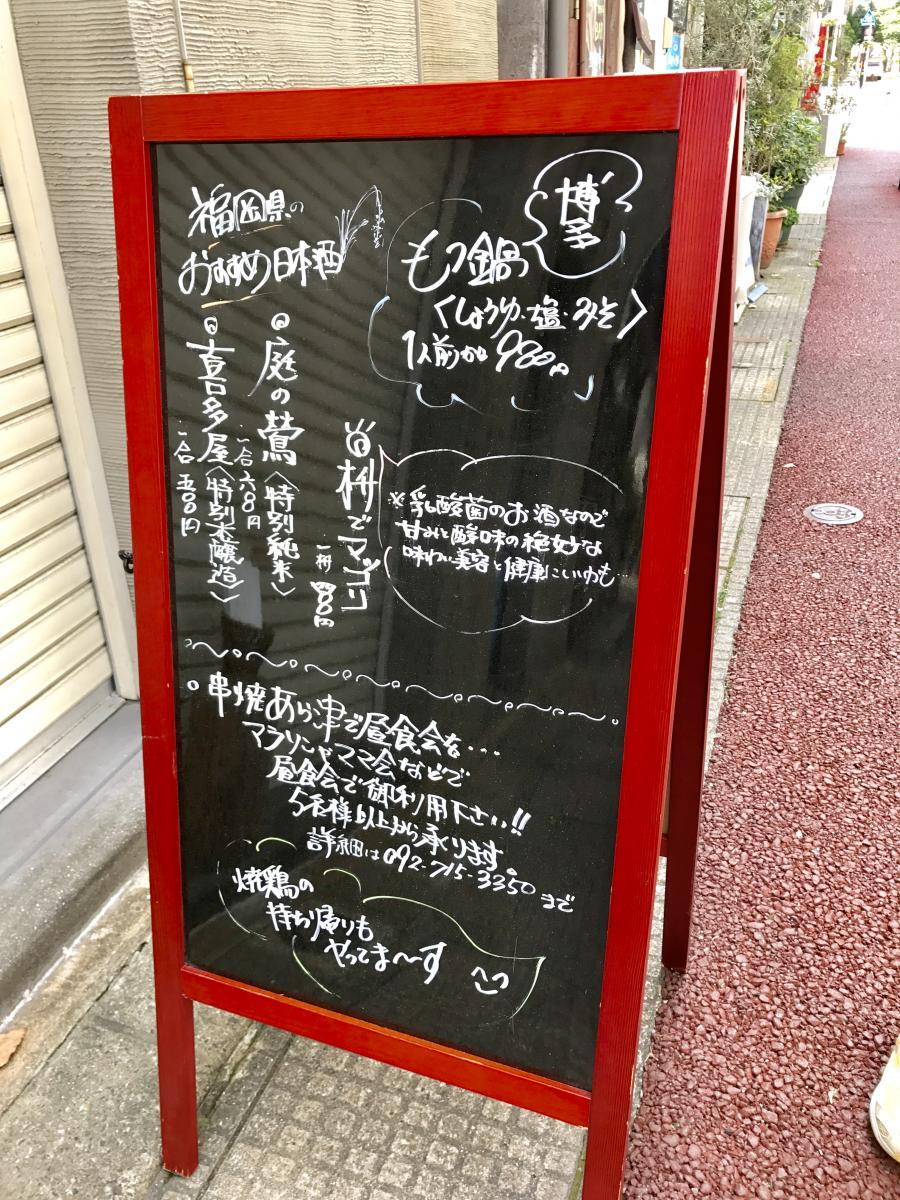 福岡県の
おすすめ日本酒
博多
もつ鍋
〈しょうゆ・塩・みそ〉
1人前から980円
庭の鶯〈特別純米〉
一合六〇〇円
喜多屋〈特別本醸造〉
一合五〇〇円
枡でマッコリ
一枡
※乳酸菌のお酒なので
甘みと酸味の絶妙な
味わい美容と健康にいいかも…
○串焼あら津で昼食会を...
マラソンやママ会などで
昼食会で御利用下さい!!
5名様以上から承ります。
詳細は092-715-3350まで
焼鶏の
持ち帰りも
やってま〜す